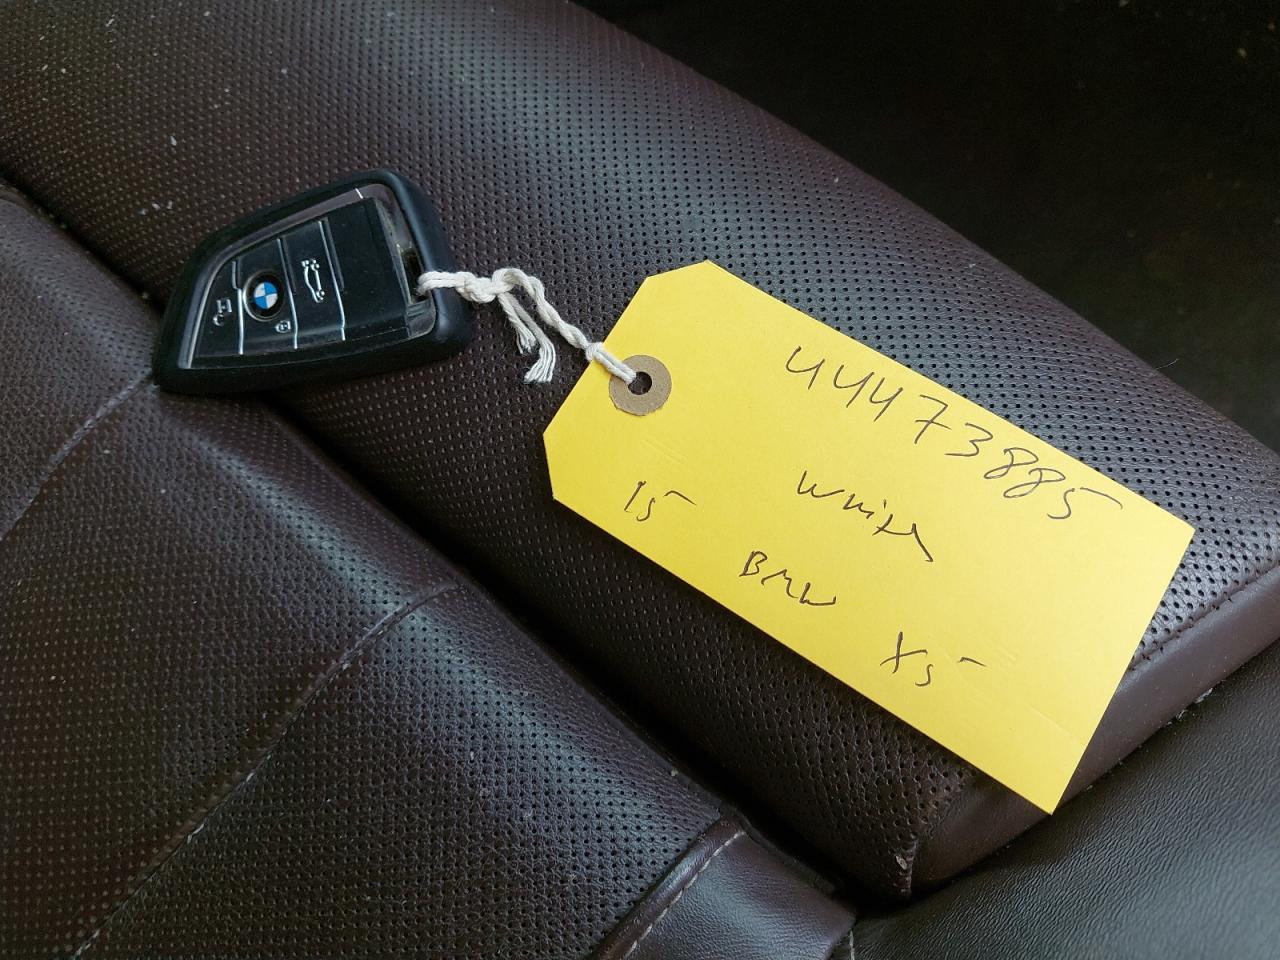 44473885
White
15 BMW X5